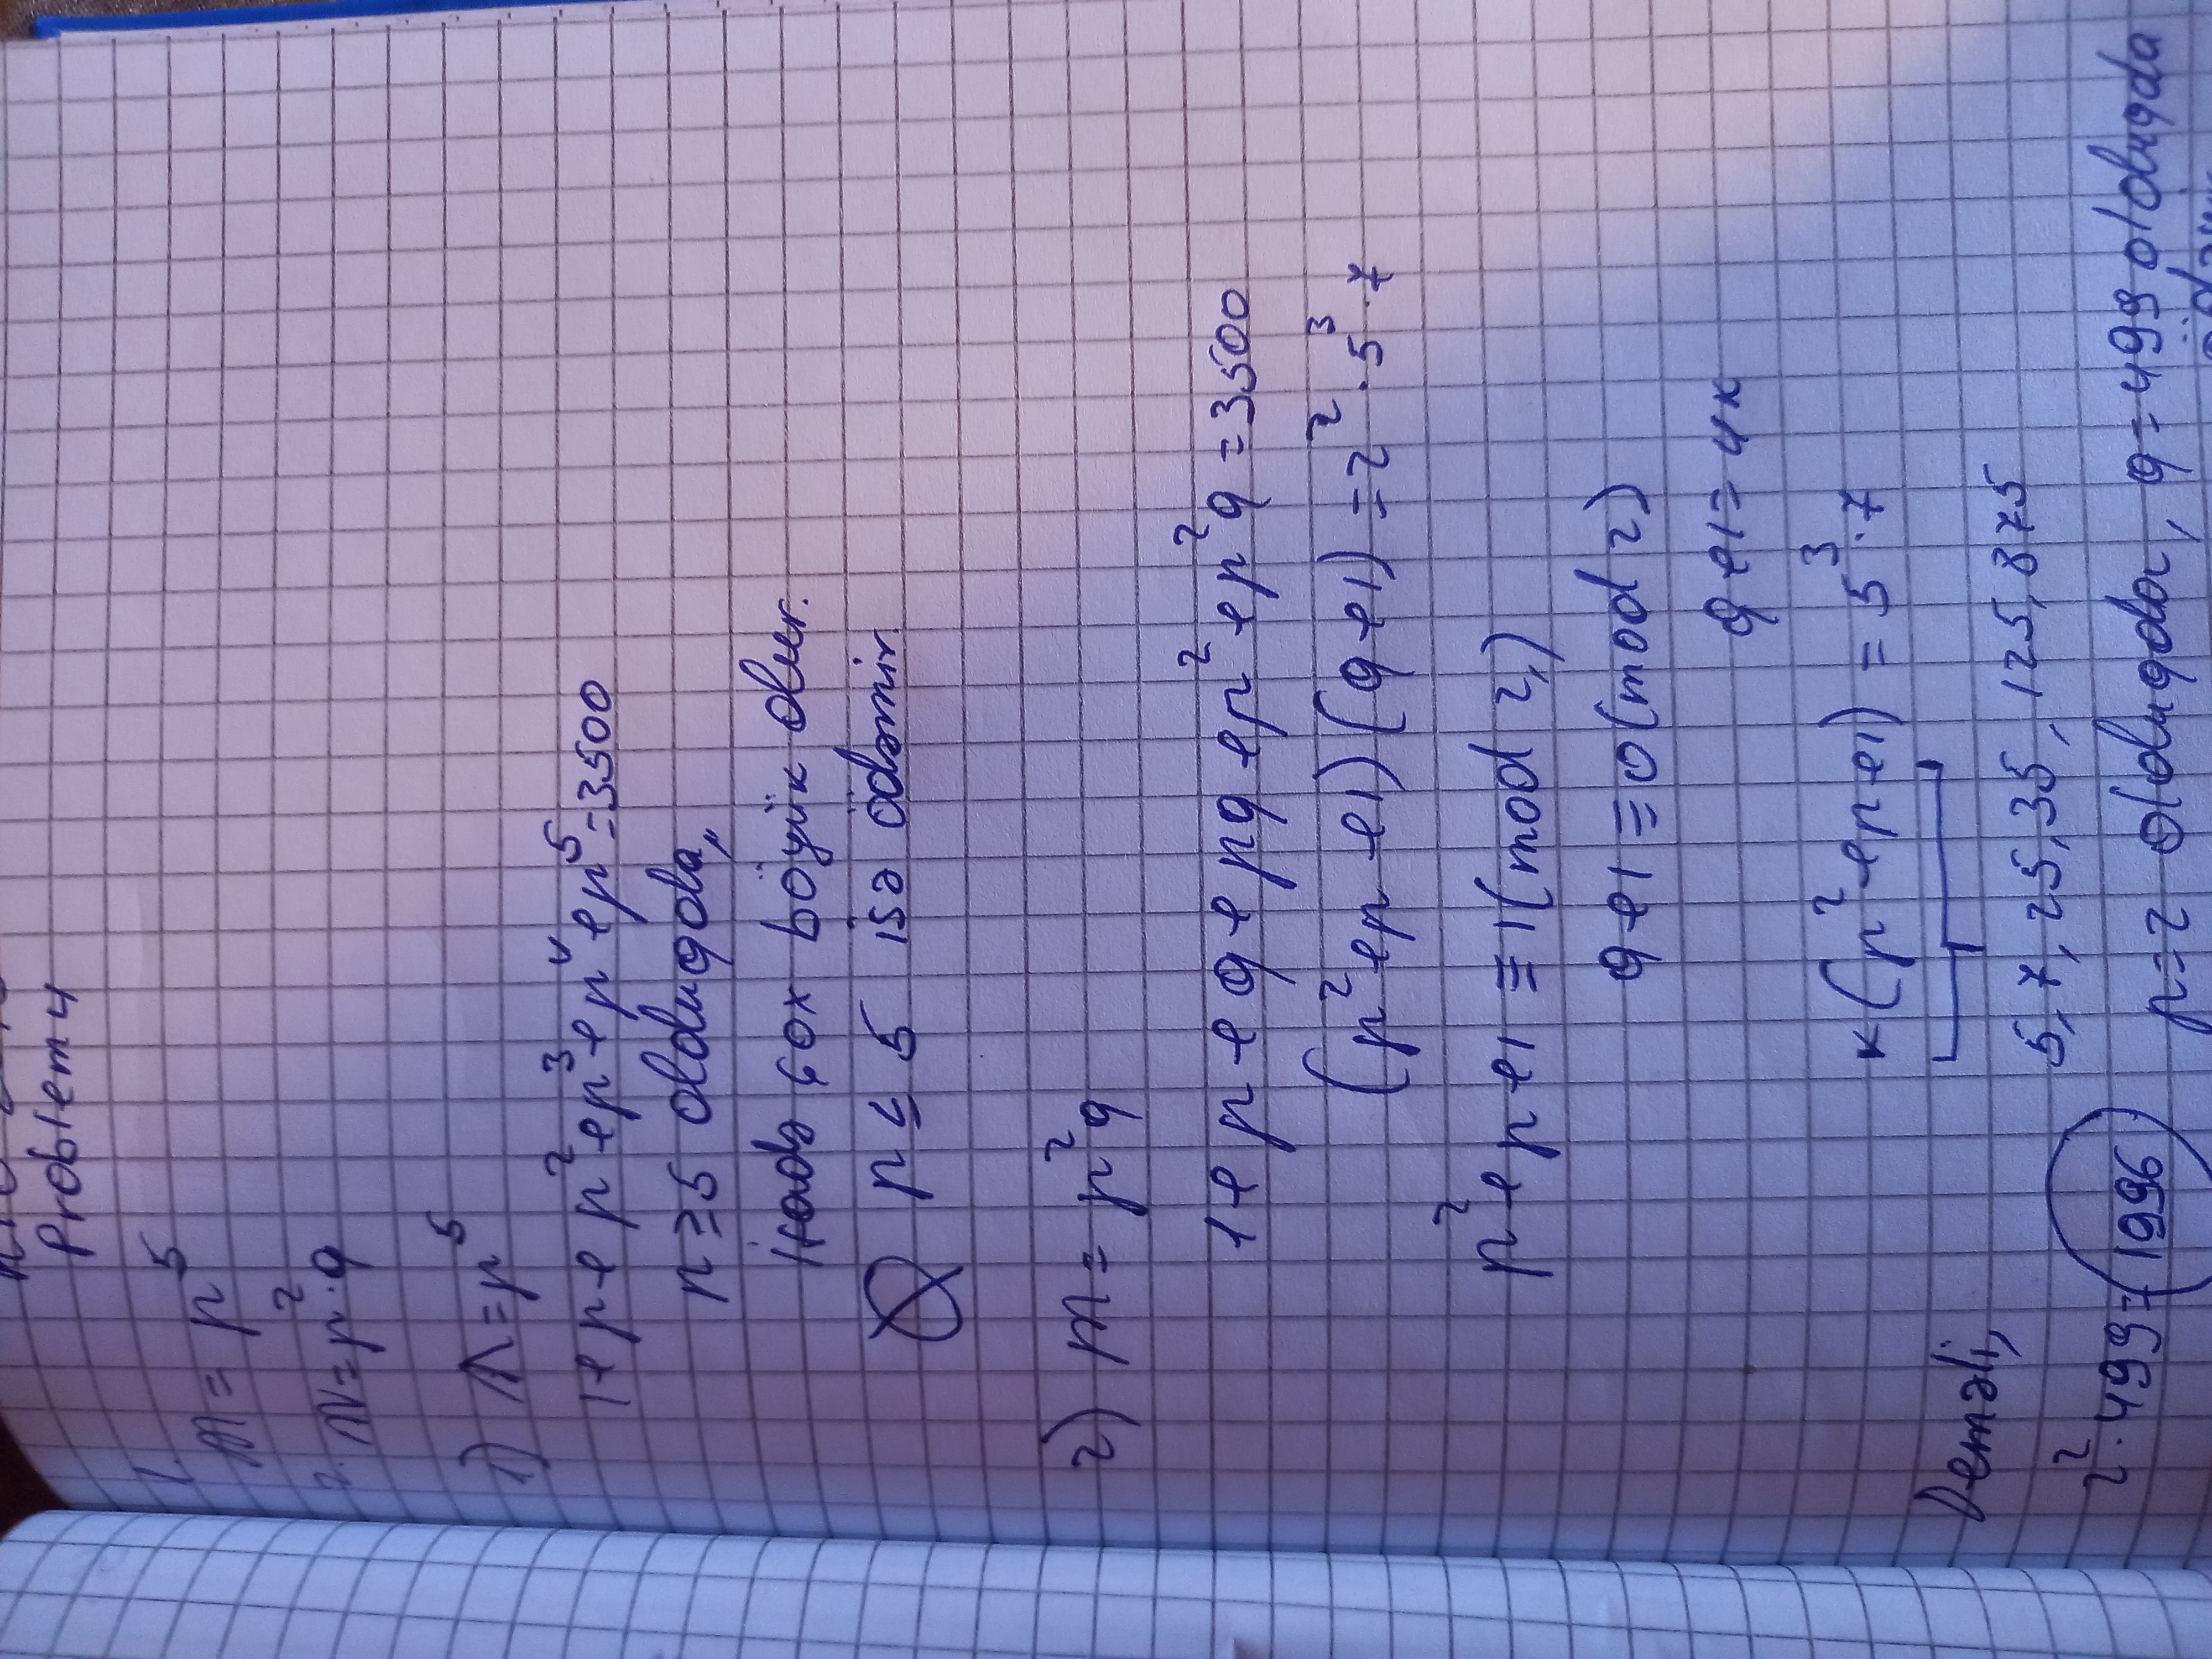 Problem 4
1.
m = p⁵
2. m = p²·q
1) m = p⁵
1+p+p²+p³+p⁴+p⁵=3500
p≥5 olduqda,
ifadə çox böyük olur.
p ≤ 5 isə ödəmir.
2) m = p²q
1+p+q+pq+p²+p²q=3500
(p²+p+1)(q+1)=2²·5³·7
p²+p+1≡1(mod 2)
q+1≡0(mod 2)
q+1=4k
k(p²+p+1)=5³·7
Deməli,
5, 7, 25, 35, 125, 875
2²·499=1996
p=2 olduqda, q=499 olduqda